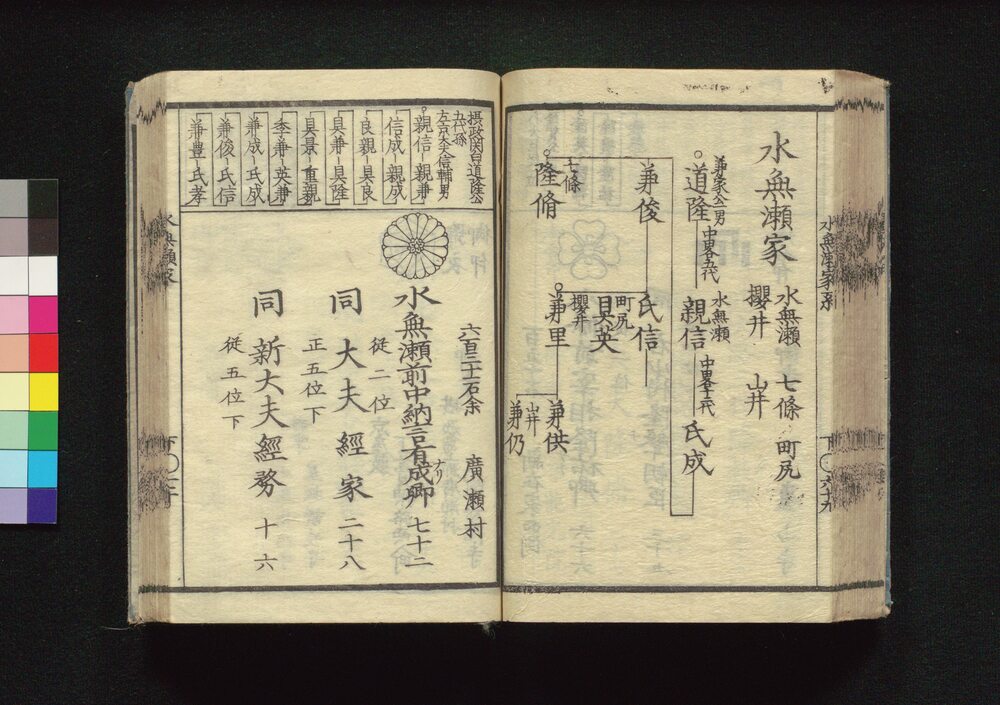 水無瀬家
水無瀬 七條 町尻
櫻井 山井
兼家公男
道隆
中畧五代
水無瀬
親信
中畧十二代
氏成
兼俊
氏信
町尻
具英
櫻井
兼里
兼供
山井
兼仍
七條
隆脩
摂政関白道隆公
五代孫
左京大夫信輔男
親信-親兼
信成-親成
良親-具良
具兼-具隆
具景-重親
季兼-英兼
兼成-氏成
兼俊-氏信
兼豊-氏孝
六百三十一石余 廣瀬村
水無瀬前中納言有成卿 七十二
ナリ
従二位
同 大夫經家 二十八
正五位下
同 新大夫經務 十六
従五位下
水無瀬家